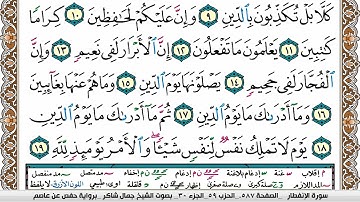 كَلَّا بَلْ تُكَذِّبُونَ بِالدِّينِ ٩ وَإِنَّ عَلَيْكُمْ لَحَافِظِينَ ١٠ كِرَامًا
كَاتِبِينَ ١١ يَعْلَمُونَ مَا تَفْعَلُونَ ١٢ إِنَّ الْأَبْرَارَ لَفِي نَعِيمٍ ١٣ وَإِنَّ
الْفُجَّارَ لَفِي جَحِيمٍ ١٤ يَصْلَوْنَهَا يَوْمَ الدِّينِ ١٥ وَمَا هُمْ عَنْهَا بِغَائِبِينَ
١٦ وَمَا أَدْرَاكَ مَا يَوْمُ الدِّينِ ١٧ ثُمَّ مَا أَدْرَاكَ مَا يَوْمُ الدِّينِ
١٨ يَوْمَ لَا تَمْلِكُ نَفْسٌ لِنَفْسٍ شَيْئًا وَالْأَمْرُ يَوْمَئِذٍ لِلَّهِ ١٩
سورة الإنفطار - الصفحة ٥٨٧ - الحزب ٥٩ - الجزء ٣٠ - بصوت الشيخ جمال شاكر - برواية حفص عن عاصم